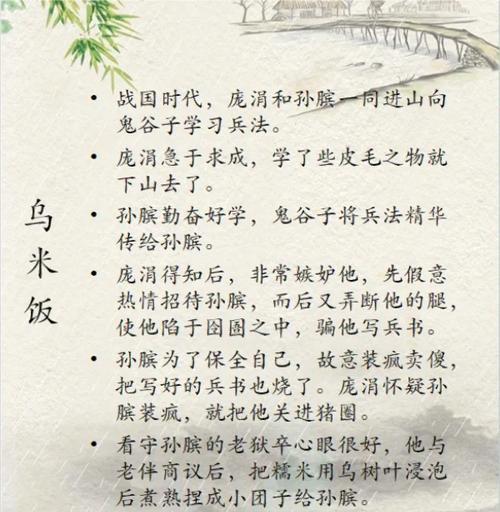 乌米饭
• 战国时代，庞涓和孙膑一同进山向
鬼谷子学习兵法。
• 庞涓急于求成，学了些皮毛之物就
下山去了。
• 孙膑勤奋好学，鬼谷子将兵法精华
传给孙膑。
• 庞涓得知后，非常嫉妒他，先假意
热情招待孙膑，而后又弄断他的腿，
使他陷于囹圄之中，骗他写兵书。
• 孙膑为了保全自己，故意装疯卖傻，
把写好的兵书也烧了。庞涓怀疑孙
膑装疯，就把他关进猪圈。
• 看守孙膑的老狱卒心眼很好，他与
老伴商议后，把糯米用乌树叶浸泡
后煮熟捏成小团子给孙膑。